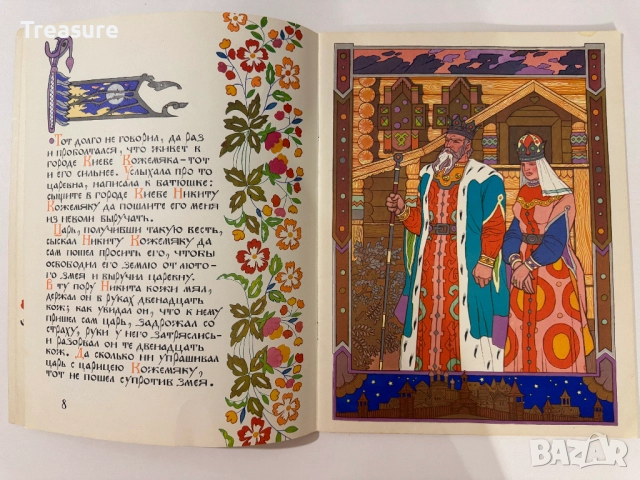 Treasure
Тот долго не говорил, да раз
и проболтался, что живет в
городе Киеве Кожемяка – тот
и его сильнее. Услыхала про то
царевна, написала к батюшке:
сыщите в городе Киеве Никиту
Кожемяку да пошлите его меня
из неволи выручать.
Царь, получивши такую весть,
сыскал Никиту Кожемяку да
сам пошел просить его, чтобы
освободил его землю от люто-
го змея и выручил царевну.
В ту пору Никита кожи мял,
держал он в руках двенадцать
кож; как увидал он, что к нему
пришел сам царь, задрожал со
страху, руки у него затряслись-
и разорвал он те двенадцать
кож. Да сколько ни упрашивал
царь с царицею Кожемяку,
тот не пошел супротив змея.
8
BAZAR